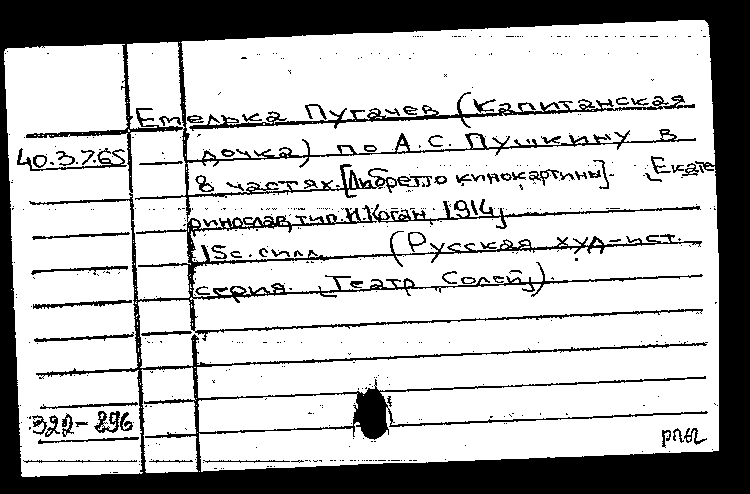 Емелька Пугачев (Капитанская
40.3.765 дочка) по А.С. Пушкину в
8 частях. [Либретто кинокартины]. [Екате
ринослав, тип. И. Коган, 1914]
15 с. с илл. (Русская худ-ист.
серия. [Театр "Солей]).
322-896